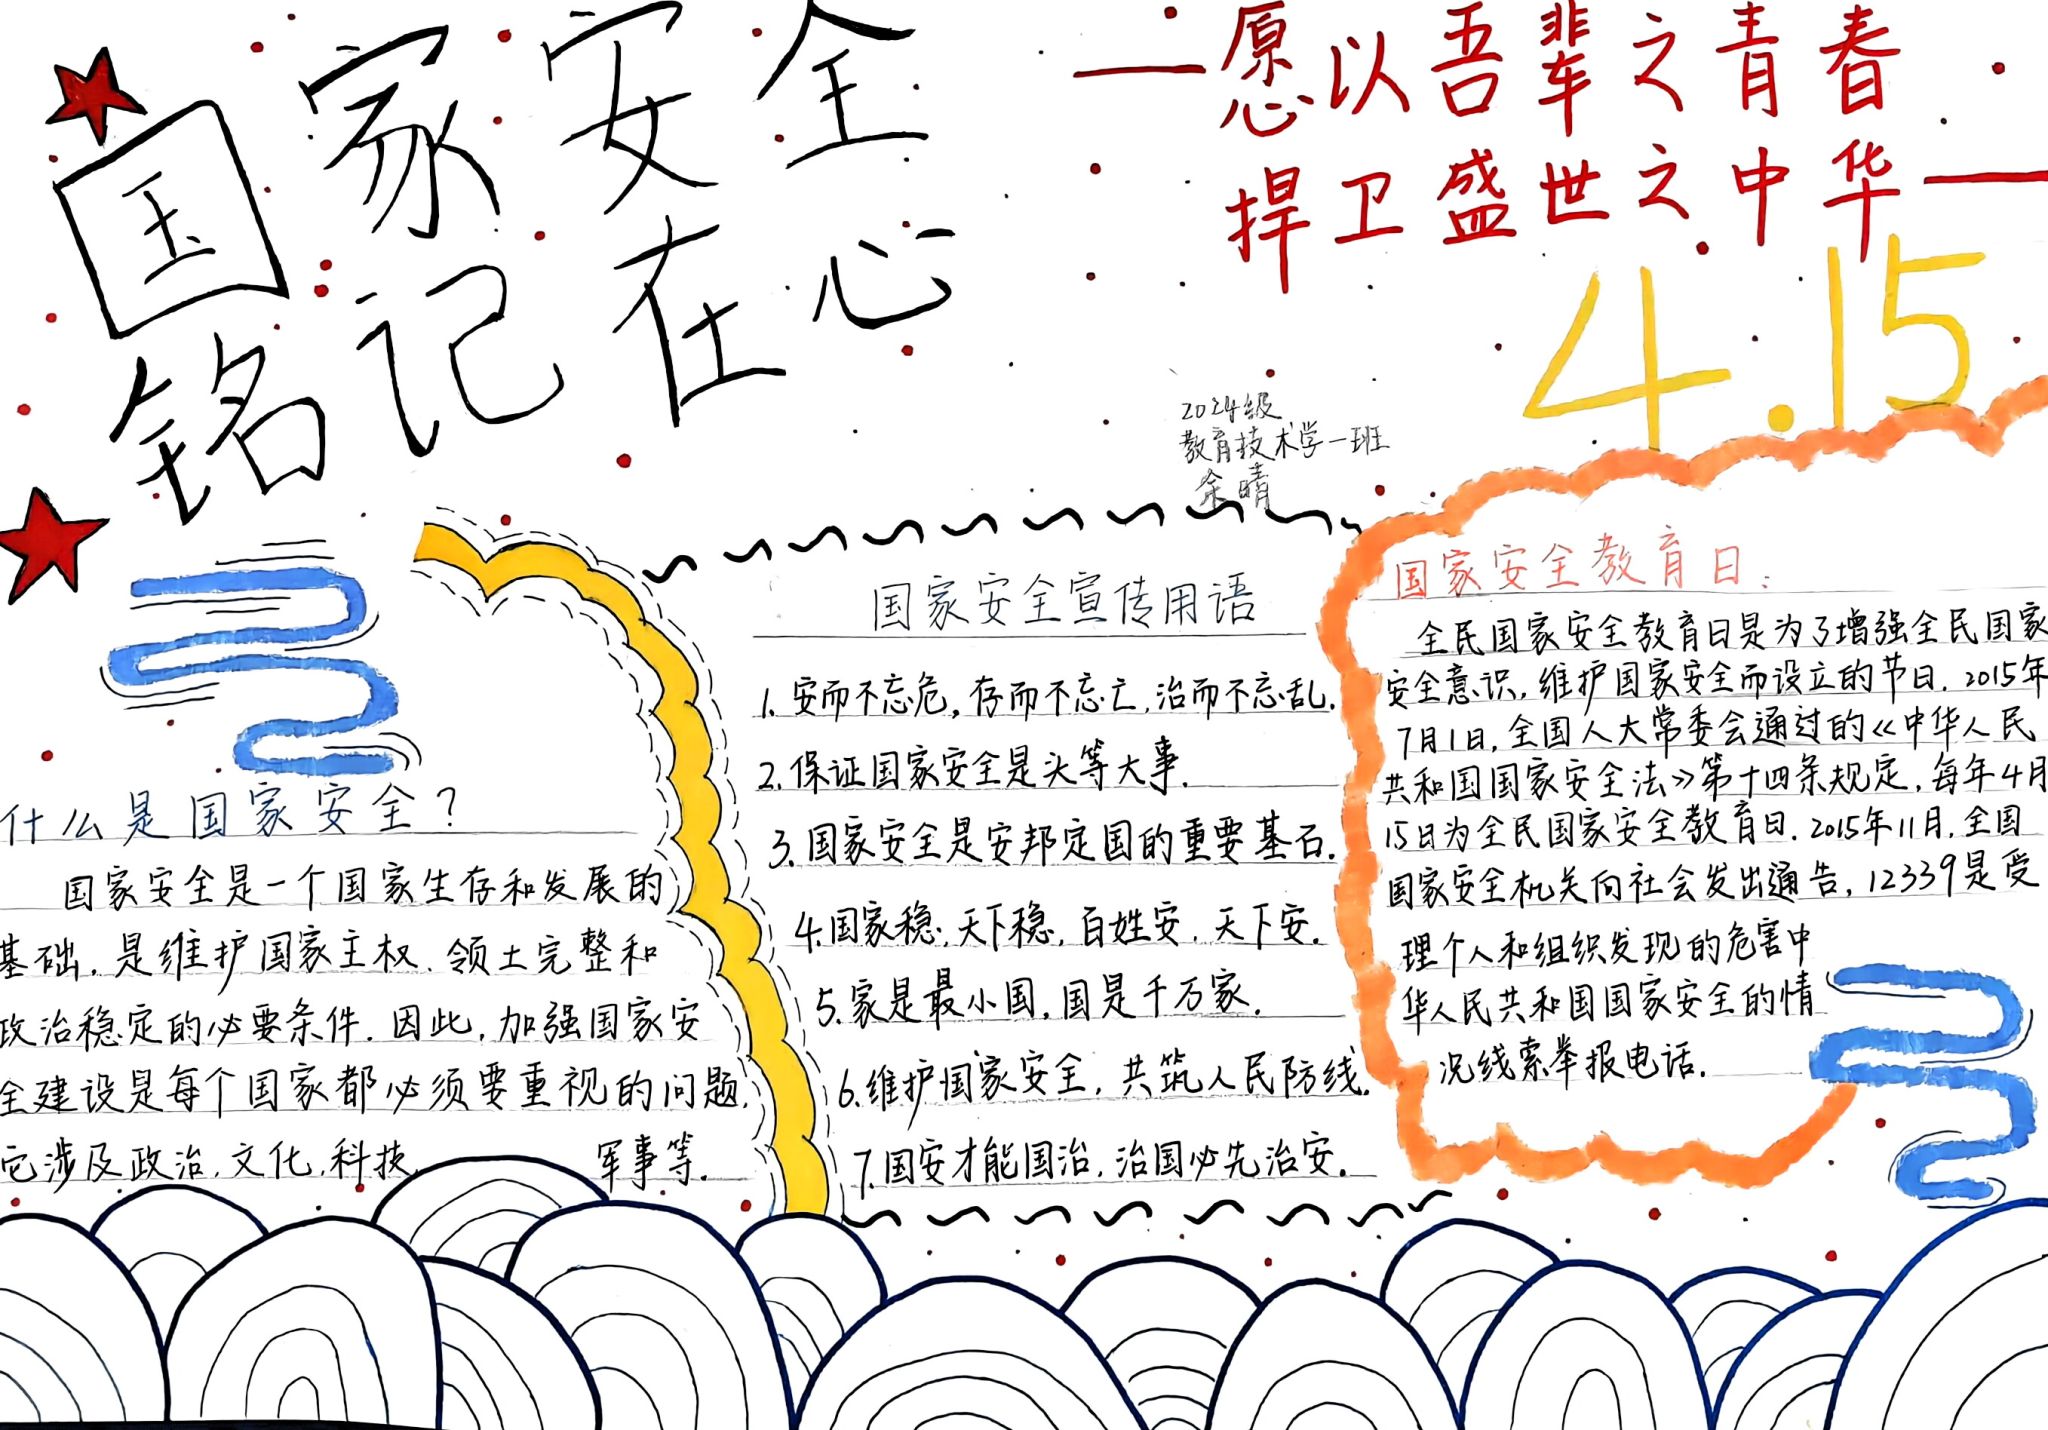 国家安全
铭记在心
—愿以吾辈之青春
捍卫盛世之中华—
4.15
2024级
教育技术学一班
余晴
什么是国家安全？
国家安全是一个国家生存和发展的
基础，是维护国家主权、领土完整和
政治稳定的必要条件．因此，加强国家安
全建设是每个国家都必须要重视的问题，
它涉及政治，文化，科技，军事等．
国家安全宣传用语
1．安而不忘危，存而不忘亡，治而不忘乱．
2．保证国家安全是头等大事．
3．国家安全是安邦定国的重要基石．
4．国家稳，天下稳，百姓安，天下安．
5．家是最小国，国是千万家．
6．维护国家安全，共筑人民防线．
7．国安才能国治，治国必先治安．
国家安全教育日：
全民国家安全教育日是为了增强全民国家
安全意识，维护国家安全而设立的节日．2015年
7月1日，全国人大常委会通过的《中华人民
共和国国家安全法》第十四条规定，每年4月
15日为全民国家安全教育日．2015年11月，全国
国家安全机关向社会发出通告，12339是受
理个人和组织发现的危害中
华人民共和国国家安全的情
况线索举报电话．